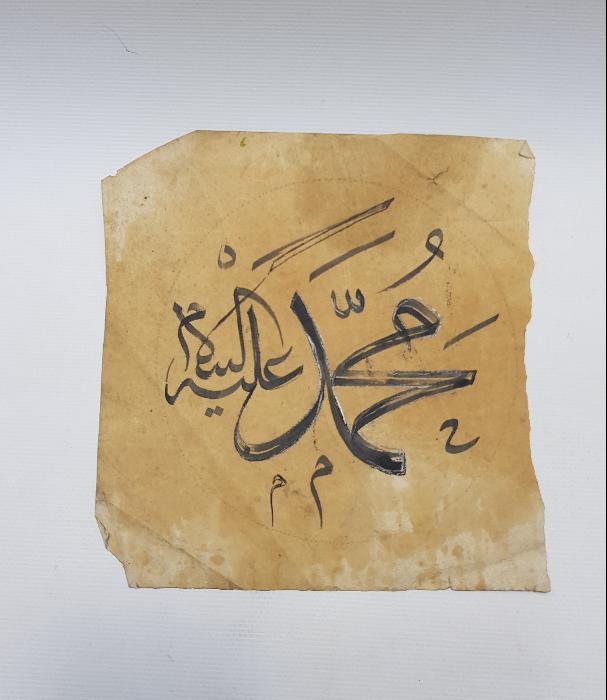 مُحَمَّد عليه السلام
ح م م